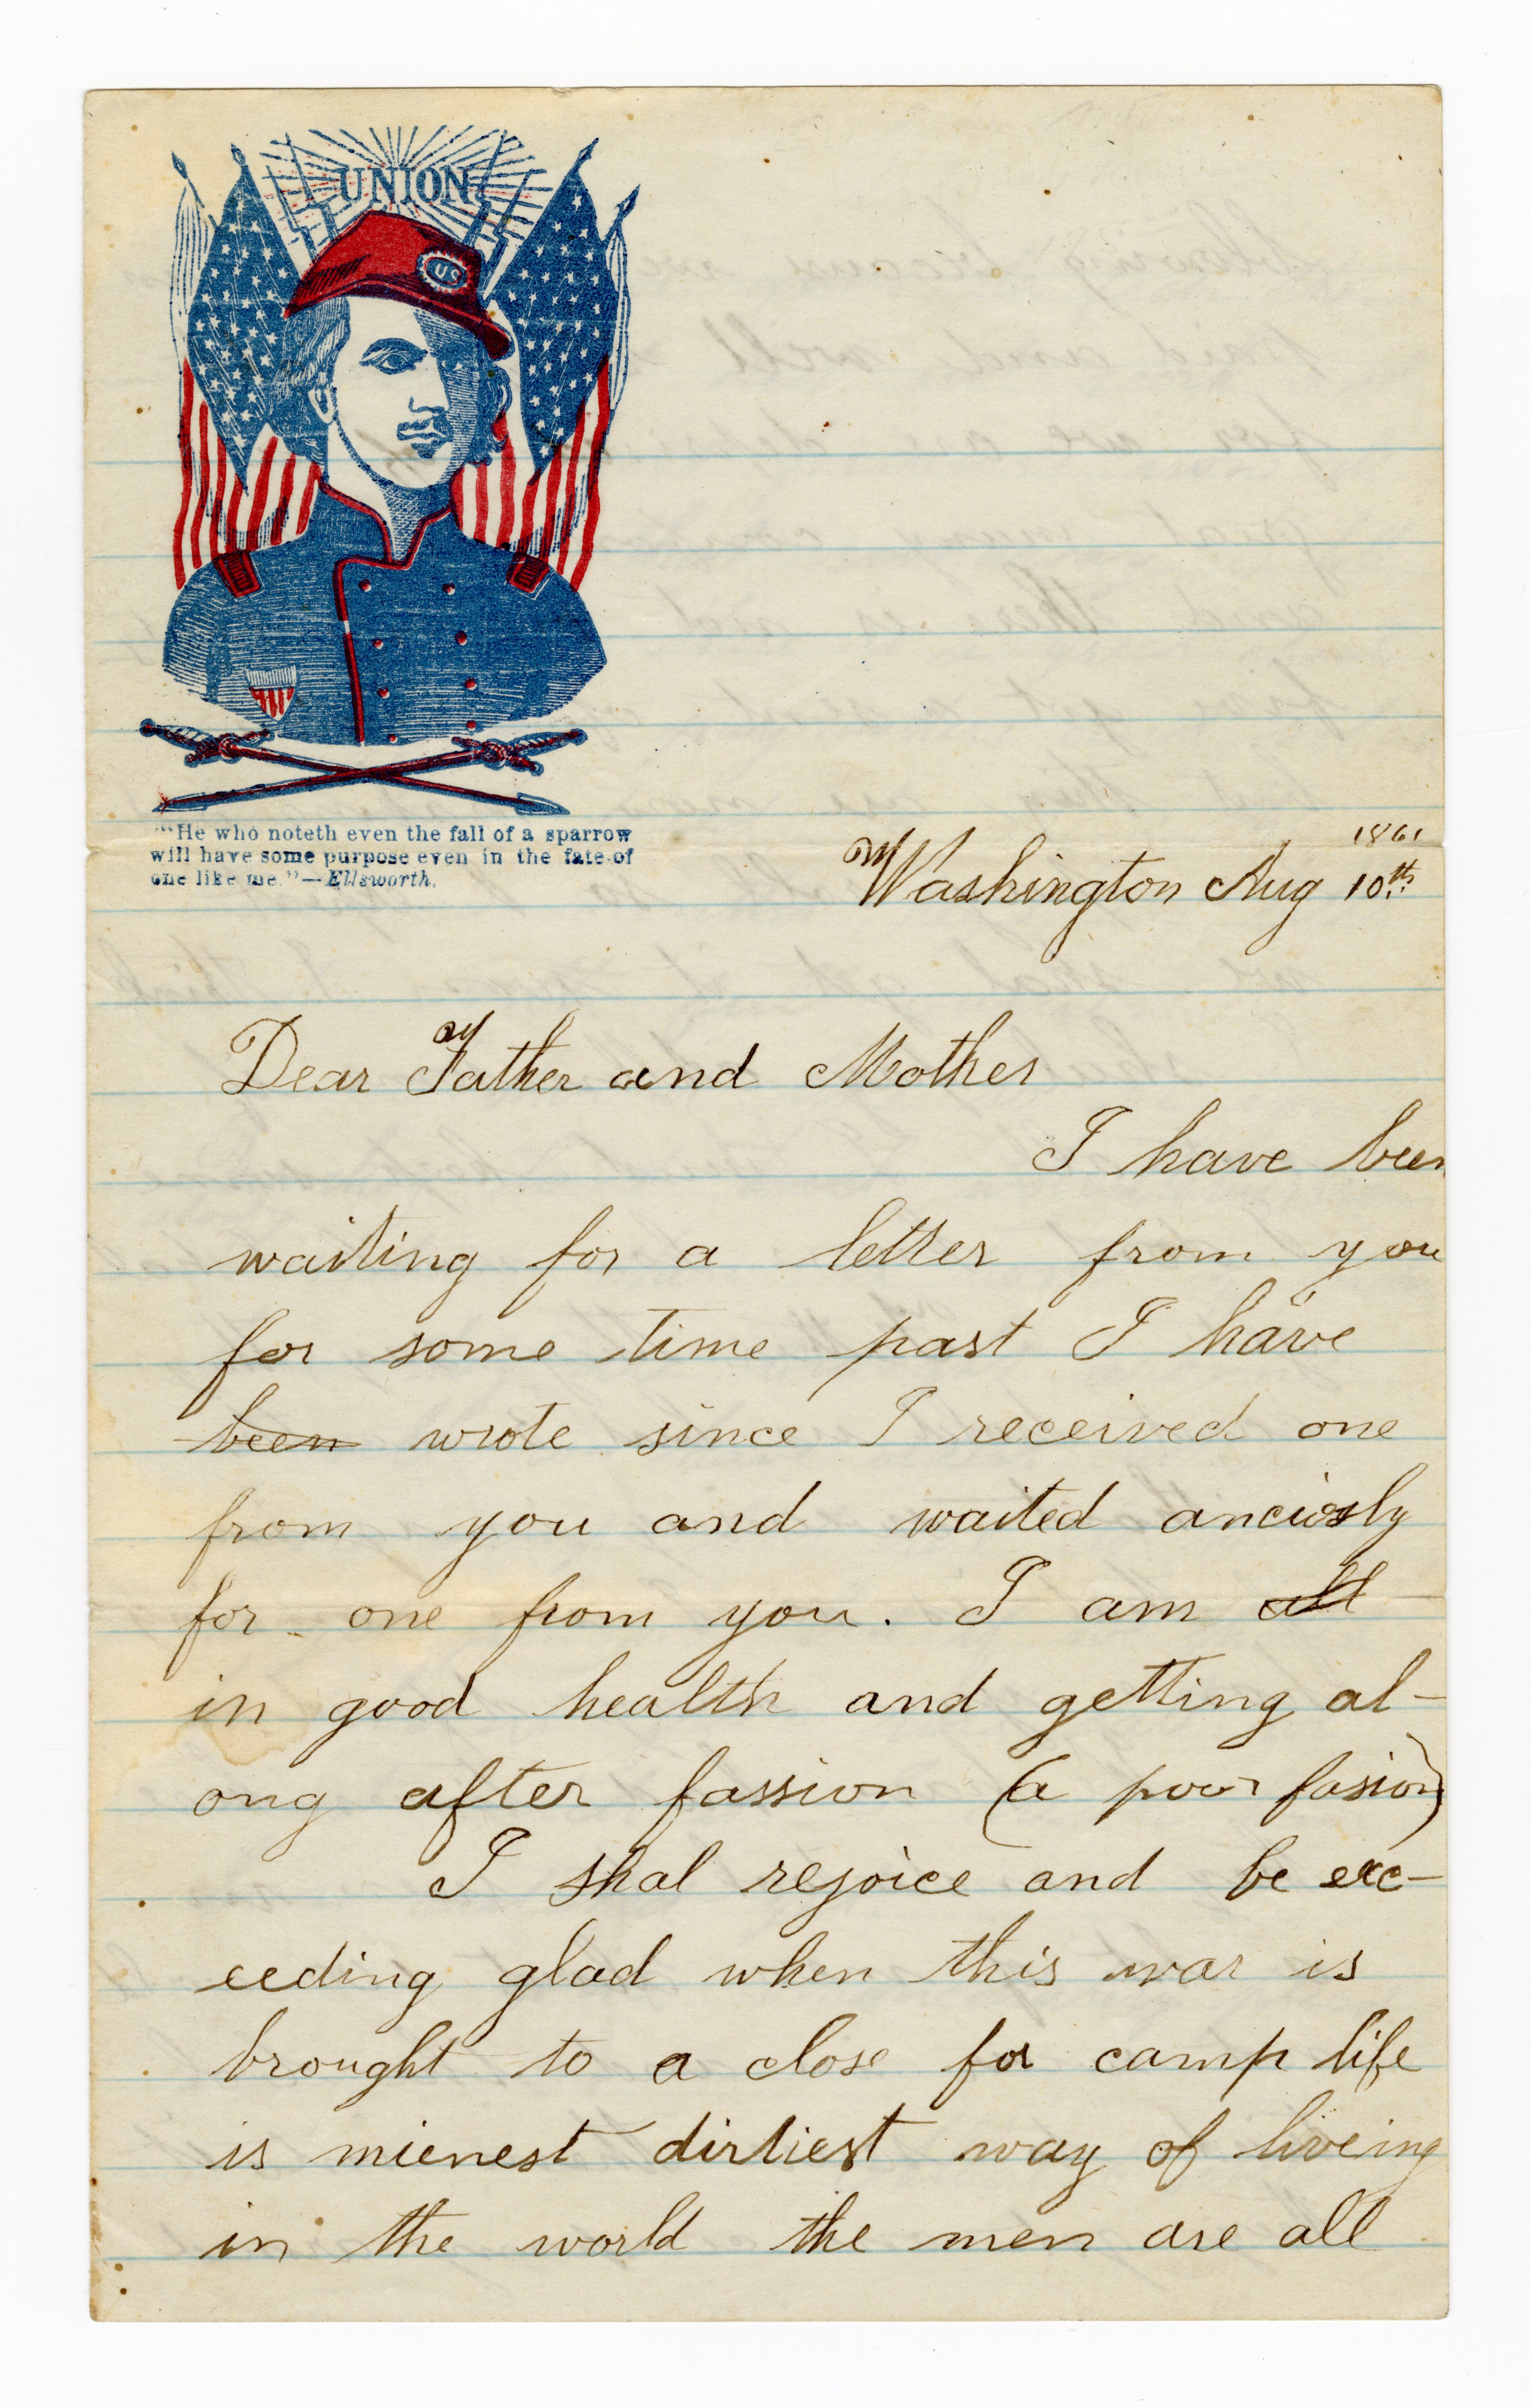 UNION
US
"He who noteth even the fall of a sparrow
will have some purpose even in the fate of
one like me."—Ellsworth.
1861
Washington Aug 10th
Dear Father and Mother
I have been
waiting for a letter from you
for some time past I have
been wrote since I received one
from you and waited anciosly
for one from you. I am all
in good health and getting al-
ong after fassion (a poor fasion)
I shal rejoice and be exc-
eeding glad when this war is
brought to a close for camp life
is mienest dirtiest way of liveing
in the world the men are all